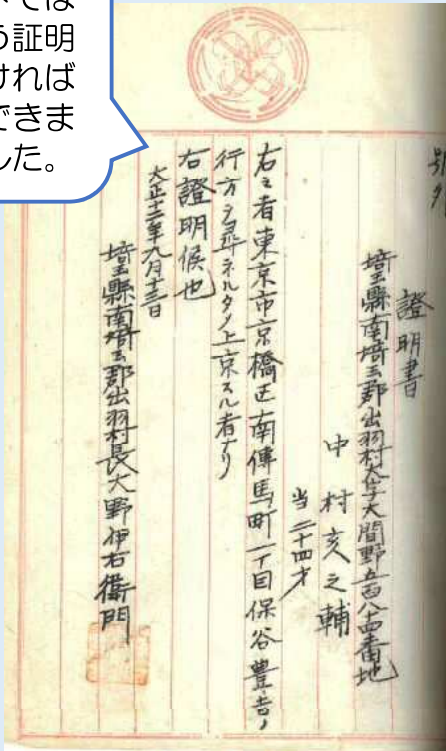 では
う証明
ければ
できま
した。
号外
證明書
埼玉縣南埼玉郡出羽村大字大間野五百八十四番地
中村亥之輔
当二十四才
右之者東京市京橋区南傳馬町一丁目保谷豊吉ノ
行方ヲ尋ネルタメ上京スル者ナリ
右證明候也
大正十二年九月十三日
埼玉縣南埼玉郡出羽村長大野伊右衛門